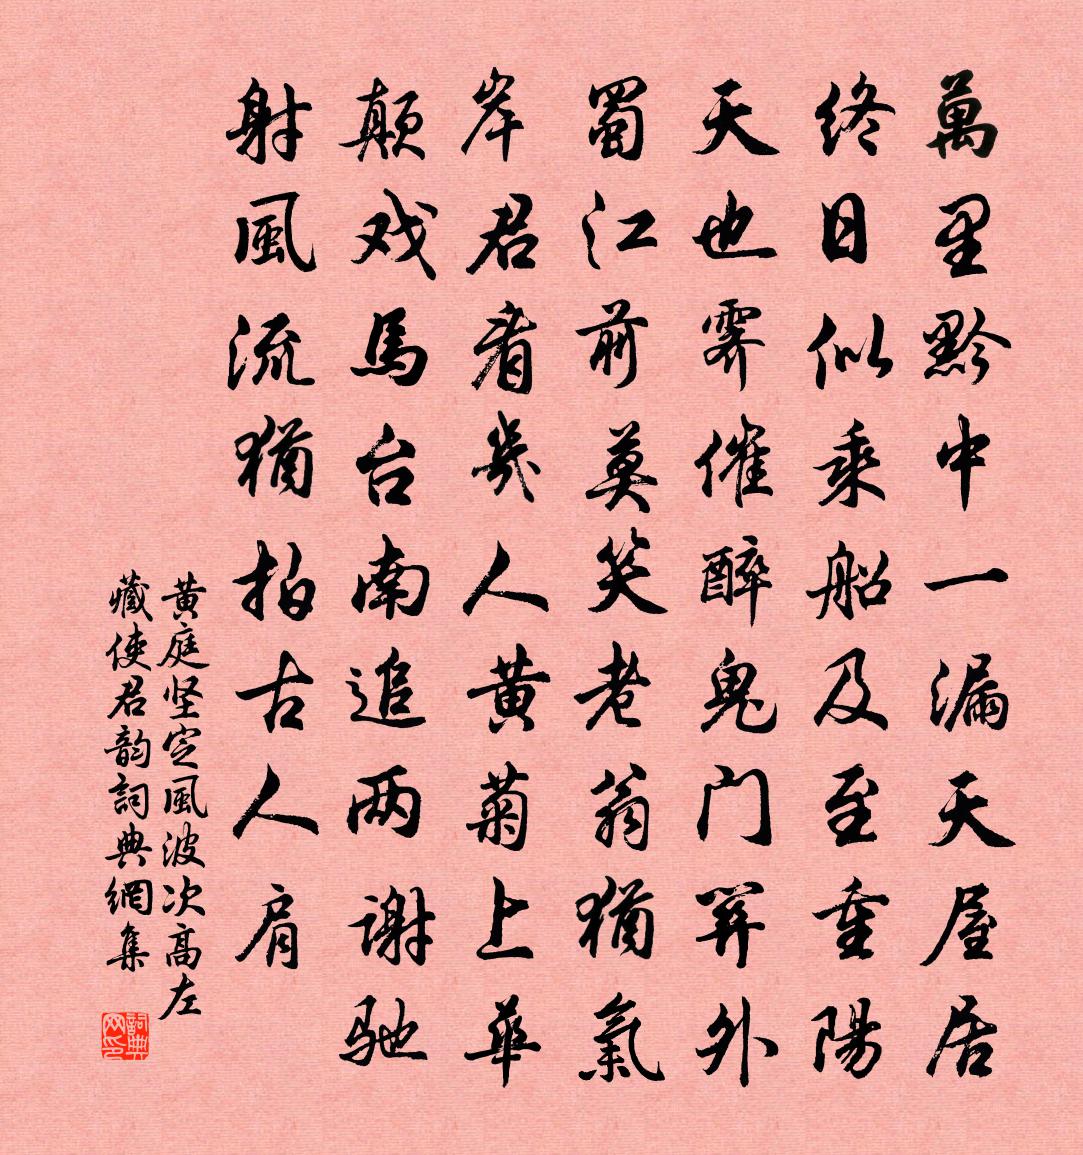 萬里黔中一漏天屋居
終日似乘船及至重陽
天也霽催醉鬼门關外
蜀江前莫笑老翁猶氣
岸君看幾人黄菊上華
颠戏馬台南追两谢馳
射風流猶拍古人肩
黄庭坚定風波次高左
藏使君韵詞典網集
詞典
网印